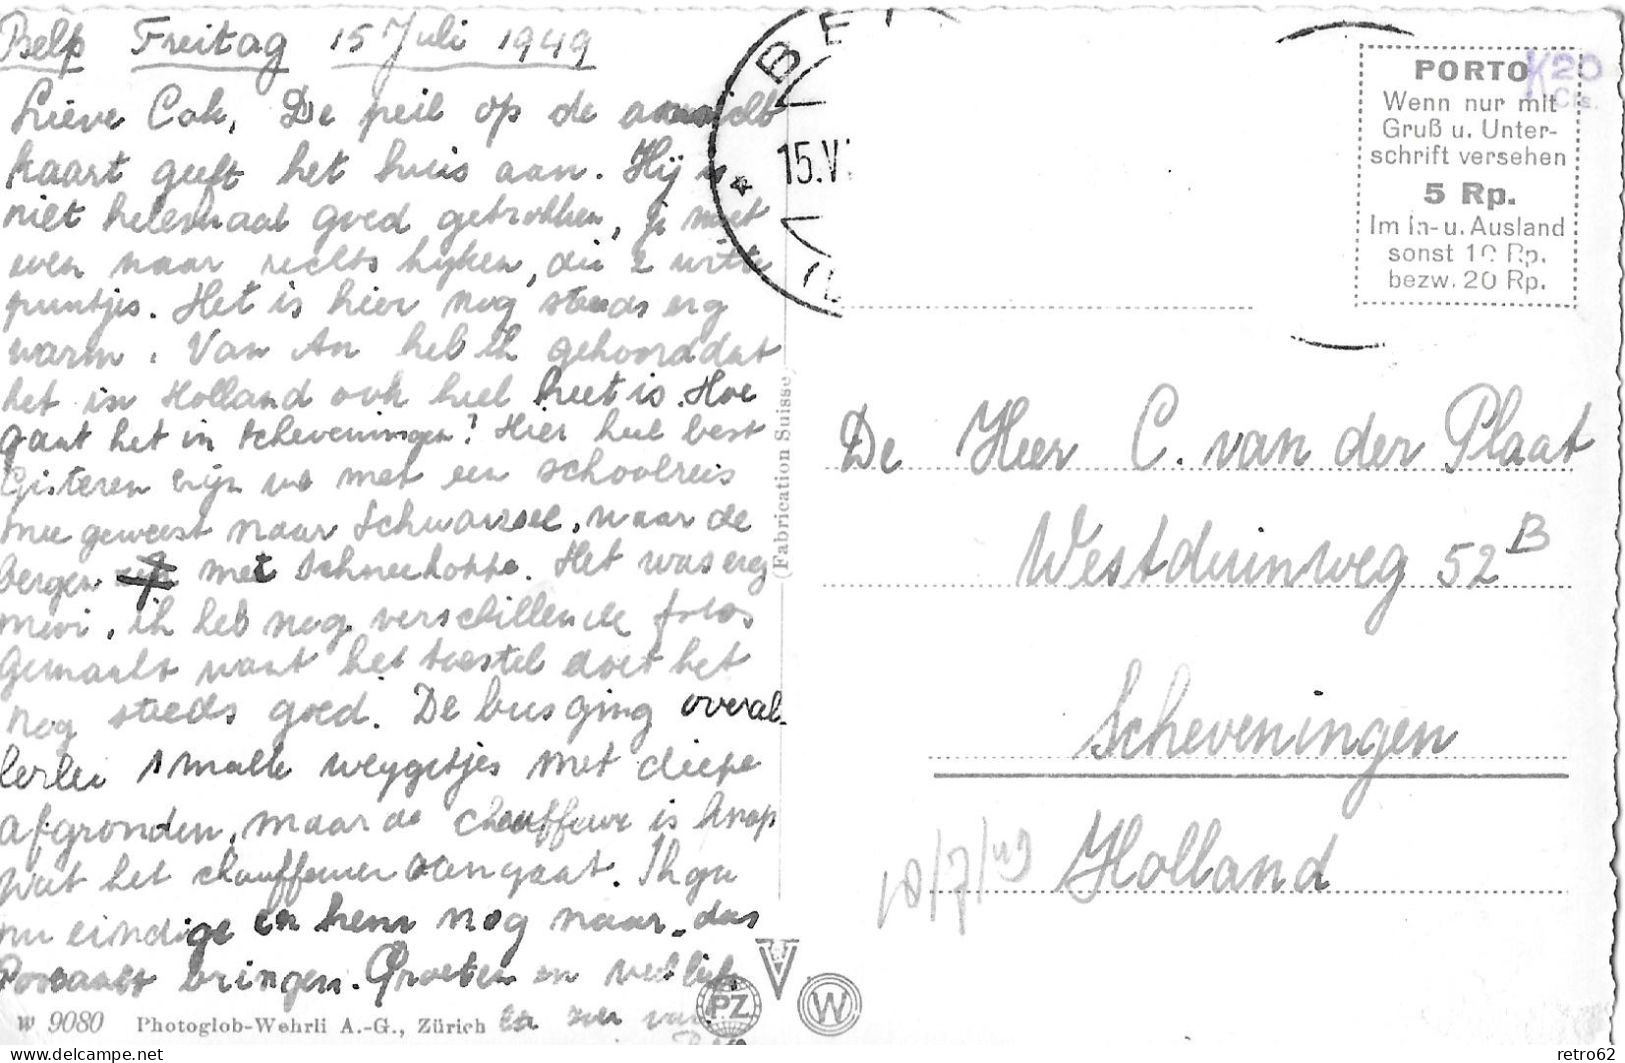 Belp Freitag 15 Juli 1949
Lieve Cok, De peil op de ansicht
kaart geeft het huis aan. Hij is
niet helemaal goed getrokken, je moet
even naar rechts kijken, die 2 witte
puntjes. Het is hier nog steeds erg
warm. Van An heb ik gehoord dat
het in Holland ook heel heet is. Hoe
gaat het in Scheveningen? Hier heel best
Gisteren zijn we met een schoolreis
mee geweest naar Schwarzsee, waar de
bergen met Schneekoppe. Het was erg
mooi, ik heb nog verschillende fotos
gemaakt want het toestel doet het
nog steeds goed. De bus ging overal
lerlei smalle weggetjes met diepe
afgronden, maar de chauffeur is knap
wat het chauffeuren aangaat. Ik ga
nu eindige en hem nog naar das
Postamt bringen. Groeten en veel liefs
en zoen van
BE
15.V
PORTO
Wenn nur mit
Gruß u. Unter-
schrift versehen
5 Rp.
Im In- u. Ausland
sonst 10 Rp.
bezw. 20 Rp.
K20
Cts.
(Fabrication Suisse)
De Heer C. van der Plaat
Westduinweg 52 B
Scheveningen
Holland
W 9080 Photoglob-Wehrli A.-G., Zürich
PZ
W
delcampe.net
retro62